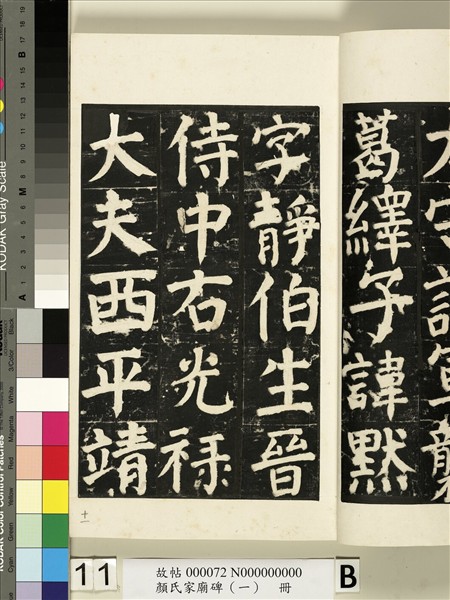 葛繹子諱默
字靜伯生晉
侍中右光禄
大夫西平靖
十一
KODAK Gray Scale
KODAK Color Control Patches
A 1 2 3 4 5 6 M 8 9 10 11 12 13 14 15 B 17 18 19
Black
3/Color
White
Magenta
Red
Yellow
Green
Cyan
11
故帖 000072 N000000000
顏氏家廟碑（一） 冊
B